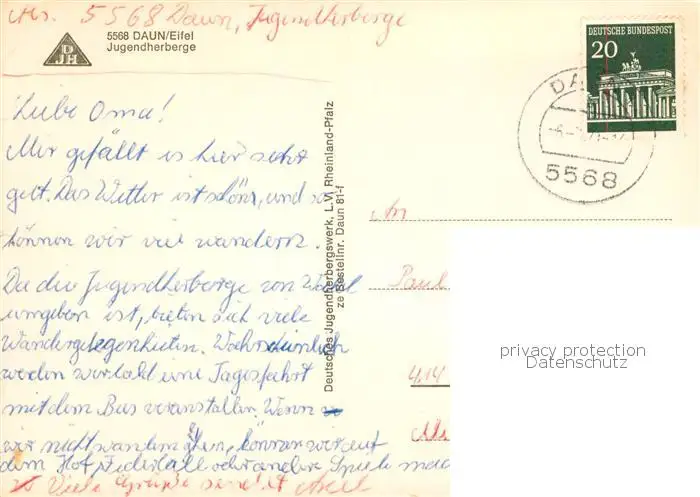 Abs. 5568 Daun, Jugendherberge
DJH
5568 DAUN/Eifel
Jugendherberge
DEUTSCHE BUNDESPOST
20
DAUN
5568
Liebe Oma!
Mir gefällt es hier sehr
gut. Das Wetter ist schön, und so
können wir viel wandern.
Da die Jugendherberge von Wald
umgeben ist, bieten sich viele
Wandergelegenheiten. Wahrscheinlich
werden wir bald eine Tagesfahrt
mit dem Bus veranstalten. Wenn
wir nicht wandern gehen, können wir auf
dem Hof Federball oder andere Spiele mac
Viele Grüße sendet Axel
Deutsches Jugendherbergswerk, L.V. Rheinland-Pfalz
ze Bestellnr. Daun 81-f
An
Paul
414
privacy protection
Datenschutz